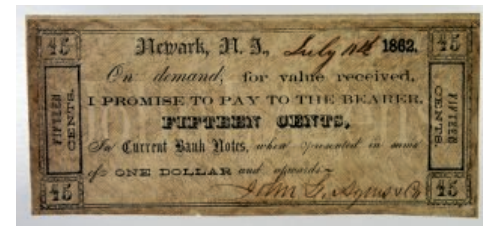 15 Newark, N. J., July 11th 1862. 15
On demand, for value received,
I PROMISE TO PAY TO THE BEARER,
FIFTEEN CENTS,
In Current Bank Notes, when presented in sums
of ONE DOLLAR and upwards
John
FIFTEEN CENTS.
FIFTEEN CENTS.
15 15